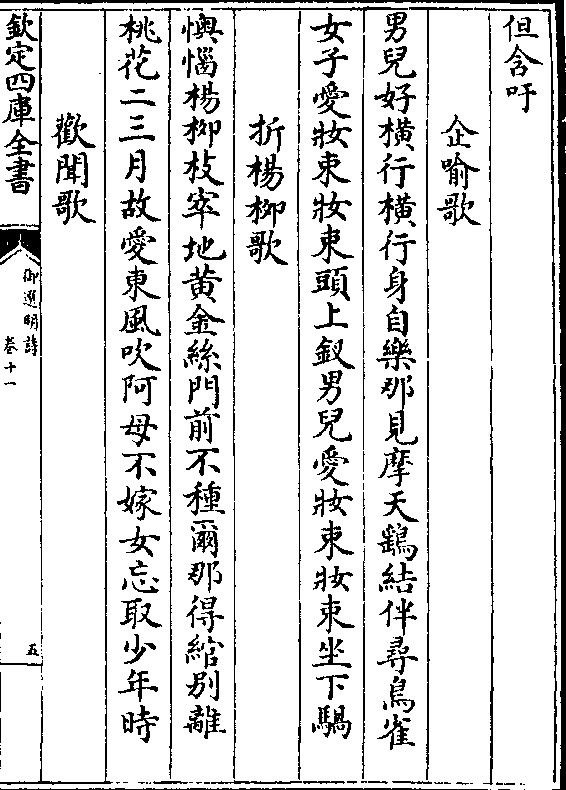 但含吁
企喻歌
男兒好橫行橫行身自樂那見摩天鷂結伴尋鳥雀
女子愛妝束妝束頭上釵男兒愛妝束妝束坐下騧
折楊柳歌
懊惱楊柳枝窣地黃金絲門前不種爾那得綰別離
桃花二三月故愛東風吹阿母不嫁女忘取少年時
歡聞歌
欽定四庫全書
御選明詩
卷十一
五